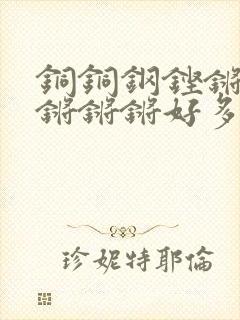 銅銅鋼鏗鏘
鏘鏘鏘好多
珍妮特耶倫